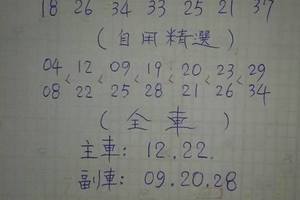 18 26 34 33 25 21 37
(自用精選)
04 12 09 19 20 23 29
< < < < < <
08 22 25 28 21 26 34
(全車)
主車: 12.22.
副車: 09.20.28